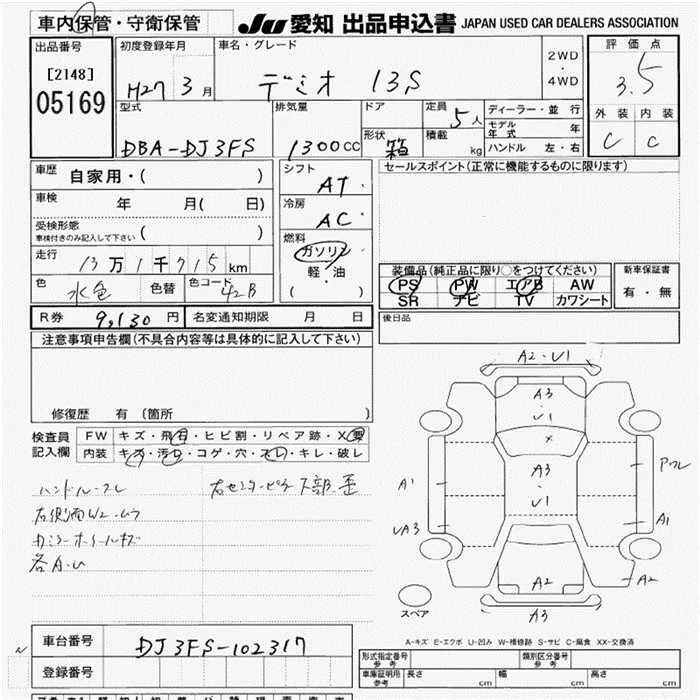 車内保管・守衛保管
JU 愛知 出品申込書 JAPAN USED CAR DEALERS ASSOCIATION
出品番号
[2148]
05169
初度登録年月
H27 3 月
車名・グレード
デミオ 13S
2WD
・
4WD
評価点
3.5
外装 内装
C C
型式
DBA-DJ3FS
排気量
1300 CC
ドア
形状
箱
定員
5人
積載
kg
ディーラー・並 行
モデル年式 年
ハンドル 左・右
車歴
自家用・( )
車検 年 月( 日)
受検形態
車検付きのみ記入して下さい ( )
走行
13万1千715km
色 水色 色替 色コード 42B
シフト
AT
冷房
AC
燃料
ガソリン
軽・油
( )
セールスポイント(正常に機能するものに限ります)
装備品(純正品に限り○をつけてください)
PS PW エアB AW
SR ナビ TV カワシート
新車保証書
有・無
R券 9,130 円 名変通知期限 月 日
後日品
注意事項申告欄(不具合内容等は具体的に記入して下さい)
修復歴 有(箇所 )
検査員
記入欄
FW キズ・飛石・ヒビ割・リペア跡・X要
内装 キズ・汚レ・コゲ・穴・スレ・キレ・破レ
ハンドルスレ
カミラーホイールキズ
各A.U
A2・U1
A3
U1
X
A3
U1
A1
A1
A2
A2
A3
スペア
A-キズ E-エクボ U-凹み W-補修跡 S-サビ C-腐食 XX-交換済
車台番号 DJ3FS-102317
登録番号
型式指定番号
参考
類別区分番号
参考
車庫証明用
参考
長さ cm 幅 cm 高さ cm